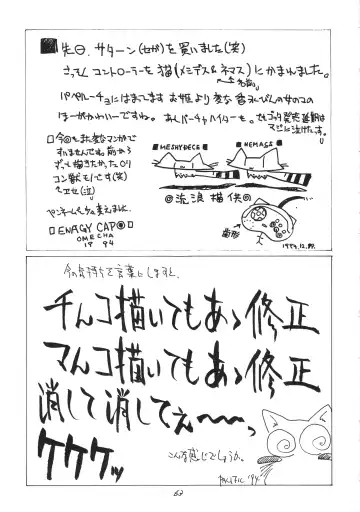 先日、サターン(セガ)を買いました(笑)
さっそくコントローラーを猫(メシデス&ネマス)にかまれました。
↑名前。
パペルーチョにはまってます お姫より変な昔えびんの女のコの
ほーがかわいーですね。あとバーチャハイターも。
□今回もまた変なマンガで
すいませんです。前から
ずっと描きたかったロリ
コン獣モノです(笑)
ペンネームも変えました。
□ENAGY CAP◎□
OMECHA
19 94
■MESHYDECE■
■NEMASS■
◎流浪猫供◎
歯形
1994.12.
今の気持ちを言葉にしますと、
チんコ描いてもあゝ修正
マんコ描いてもあゝ修正
消して消してえ〜〜っ
ケケケッ
こんな感じでしょうか。
'94.
63